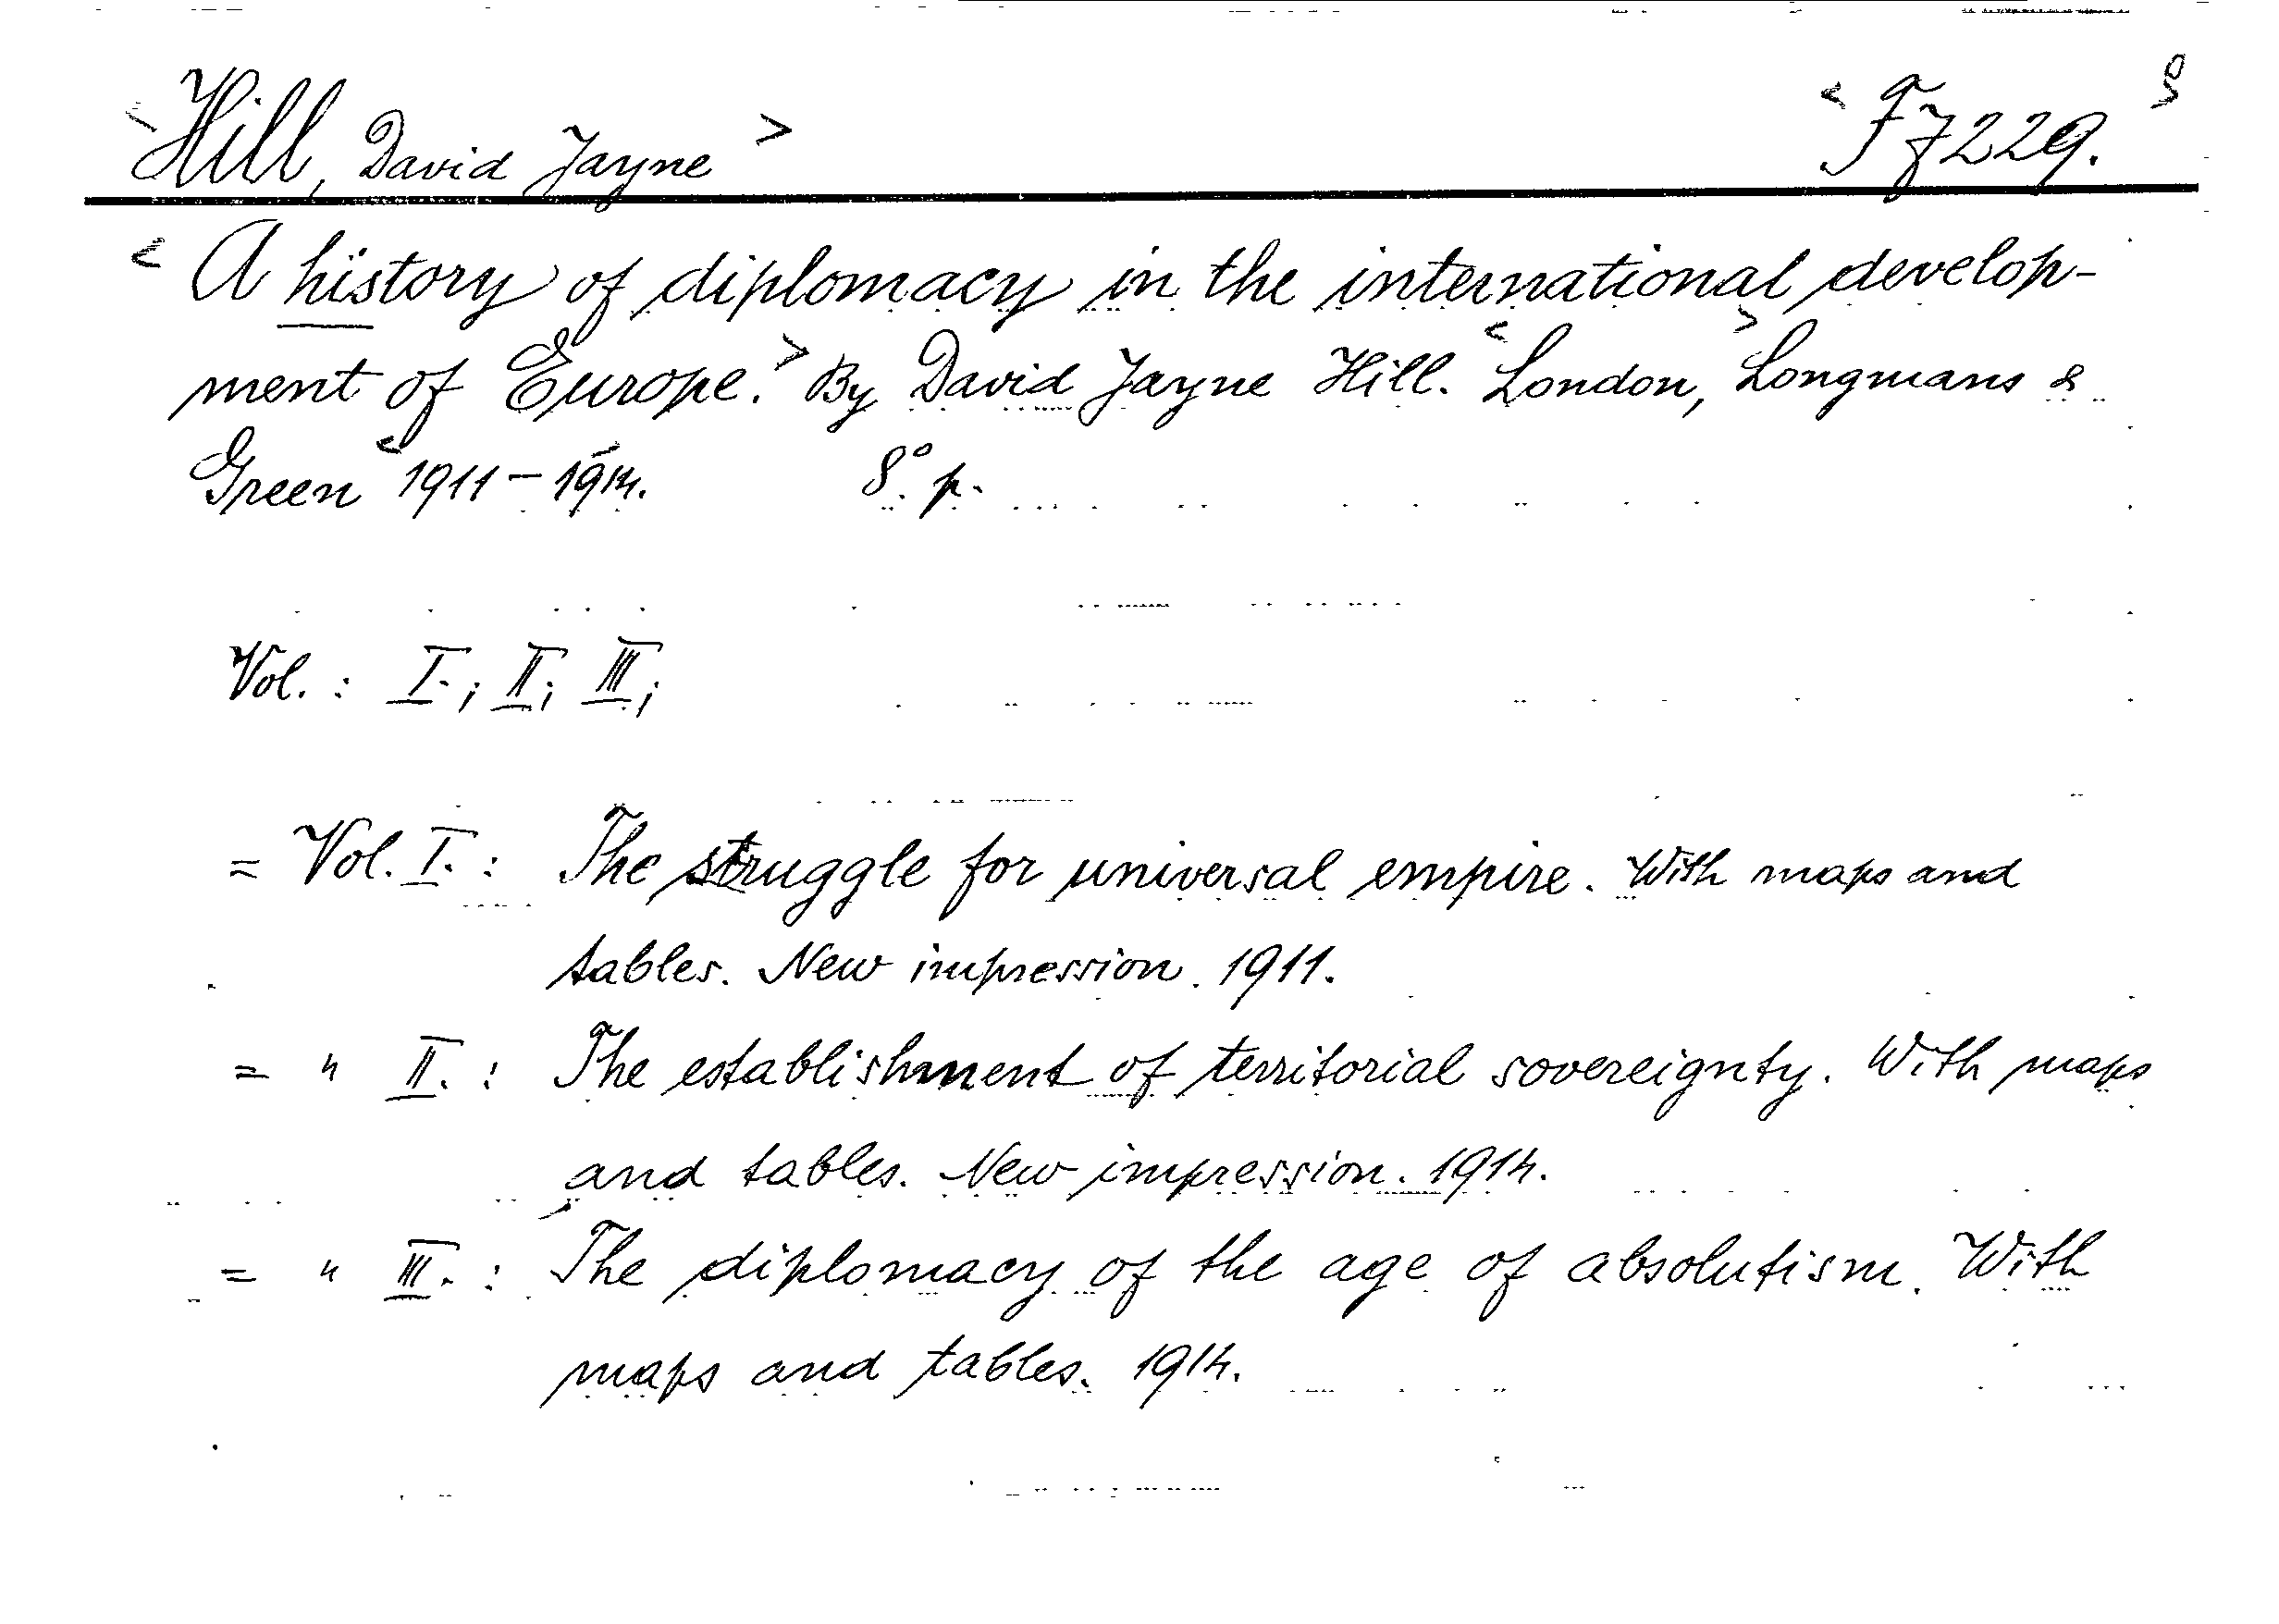 <Hill, David Jayne> <F7229.
<A history of diplomacy in the international develop-
ment of Europe.> By David Jayne Hill. <London,> Longmans &
Green <1911-1914. 8°. p.
Vol.: I.; II; III;
= Vol. I.: The struggle for universal empire. With maps and
tables. New impression. 1911.
= " II.: The establishment of territorial sovereignty. With maps
and tables. New impression. 1914.
= " III.: The diplomacy of the age of absolutism. With
maps and tables. 1914.